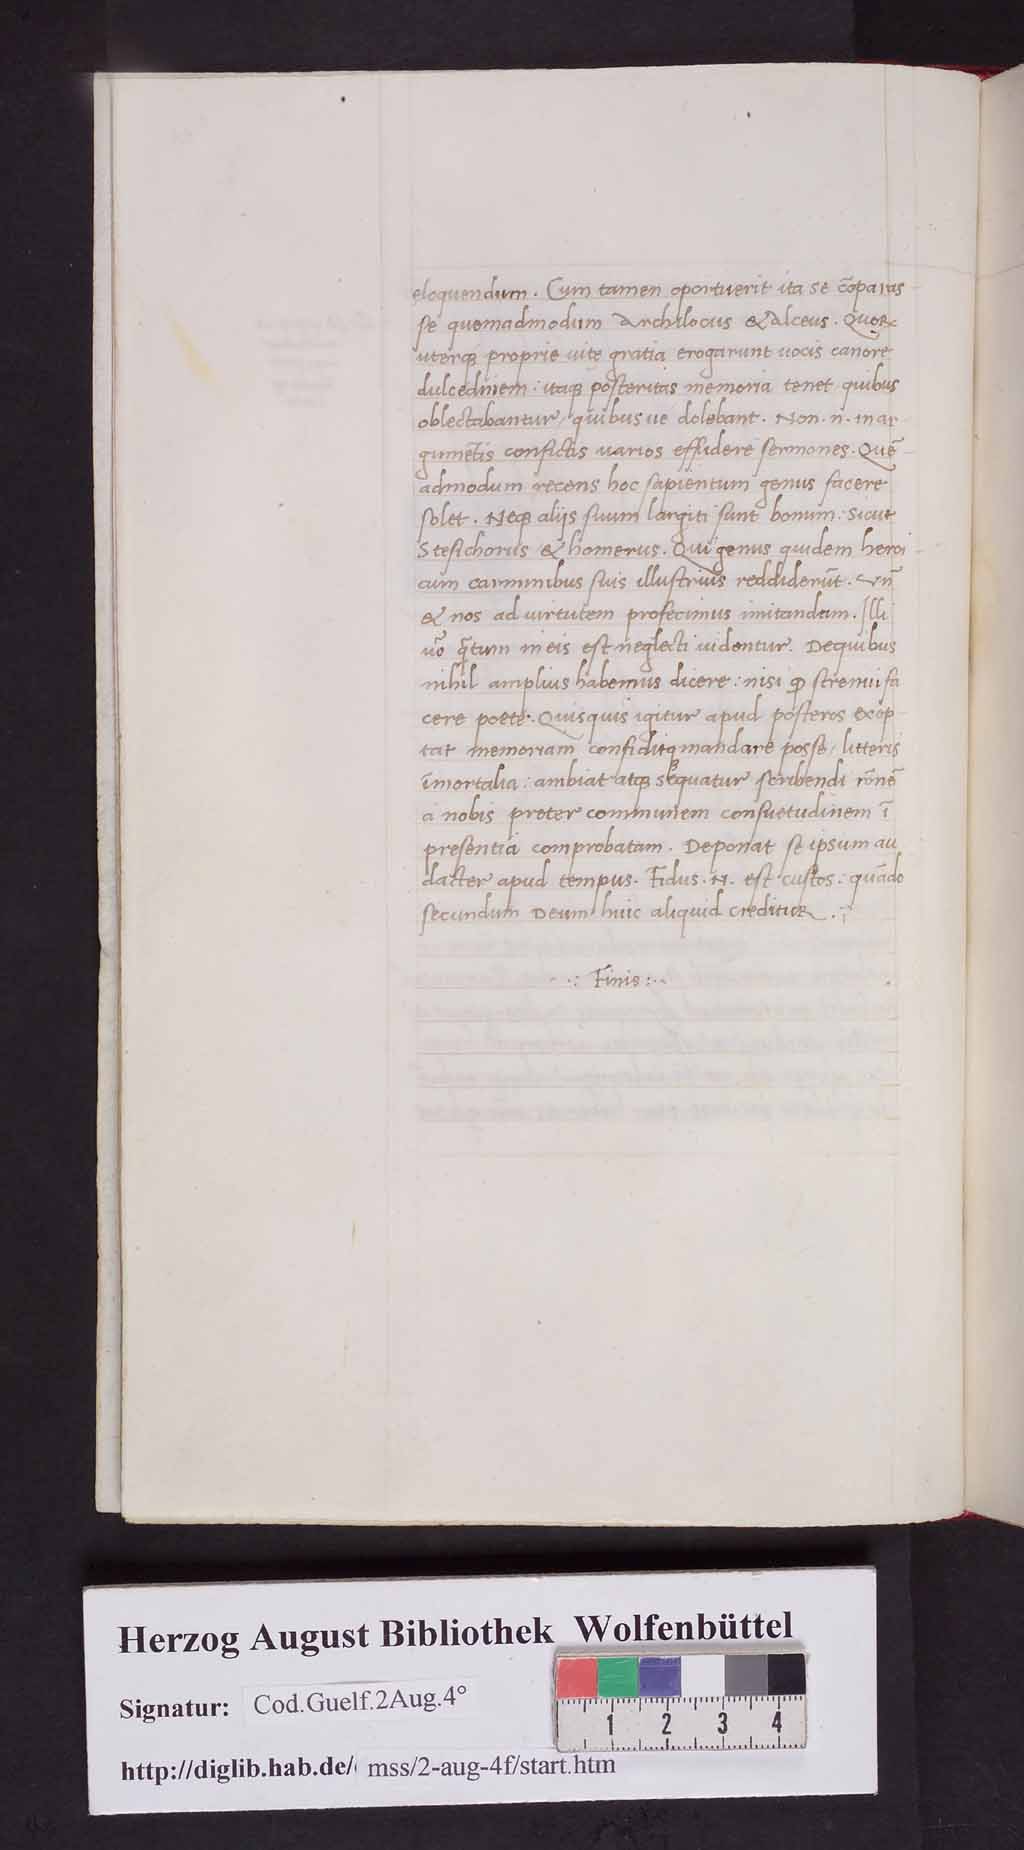 eloquendum. Cum tamen oportuerit ita se cōparas
se quemadmodum Archilocus & Alceus. Quoꝝ
uterqꝫ proprie uite gratia erogarunt uocis canore
dulcedinem: itaqꝫ posteritas memoria tenet quibus
oblectabantur, quibus ue dolebant. Non .n. in ar
gumētis confictis uarios effūdere sermones. Quē
admodum recens hoc sapientum genus facere
solet. Neqꝫ alijs suum largiti sunt bonum: Sicut
Stesichorus & homerus. Qui genus quidem heroi
cum carminibus suis illustrius reddiderūt. Vn̄
& nos ad uirtutem profecimus imitandam. Illi
uō q̄tum in eis est neglecti uidentur. De quibus
nihil amplius habemus dicere: nisi ꝙ strenui fa
cere poete. Quisquis igitur apud posteros exop
tat memoriam confiditqꝫ mandare posse, litteris
īmortalia: ambiat atqꝫ sequatur scribendi rōnē
a nobis preter communem consuetudinem ī
presentia comprobatam. Deponat se ipsum au
dacter apud tempus. Fidus .N. est custos: quādo
secundum Deum huic aliquid creditur.
Finis
Herzog August Bibliothek Wolfenbüttel
Signatur: Cod.Guelf.2Aug.4°
1 2 3 4
http://diglib.hab.de/ mss/2-aug-4f/start.htm